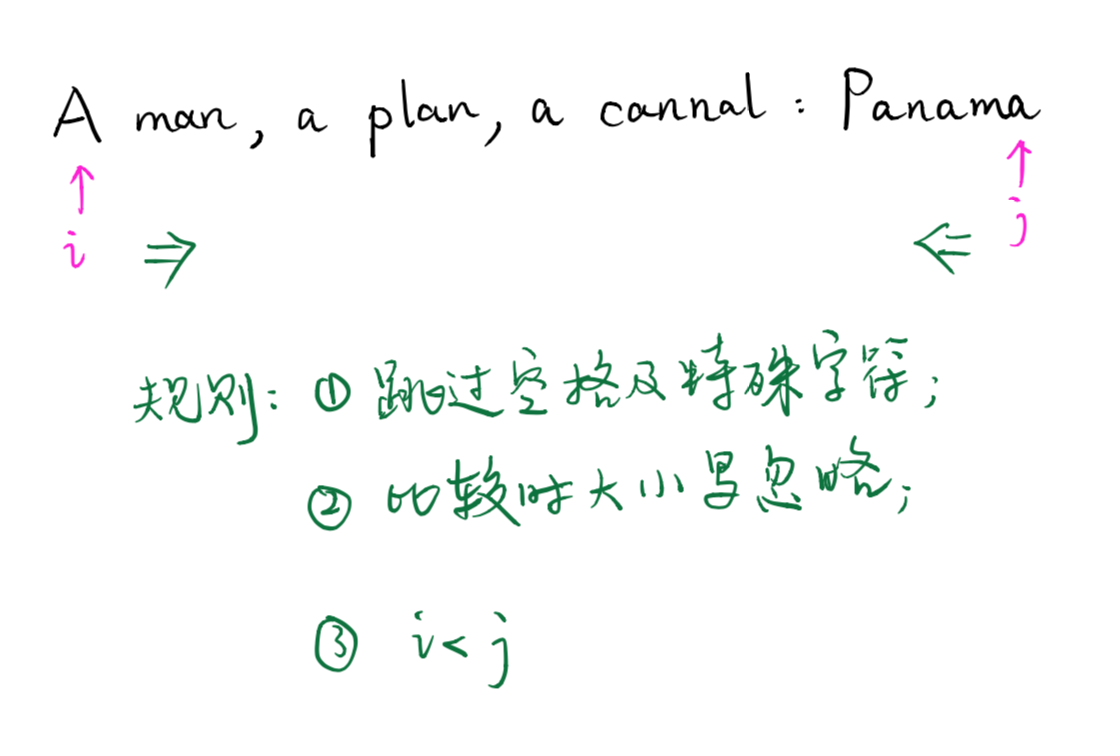 A man, a plan, a cannal : Panama
i
j
规则: ① 跳过空格及特殊字符;
② 比较时大小写忽略;
③ i < j